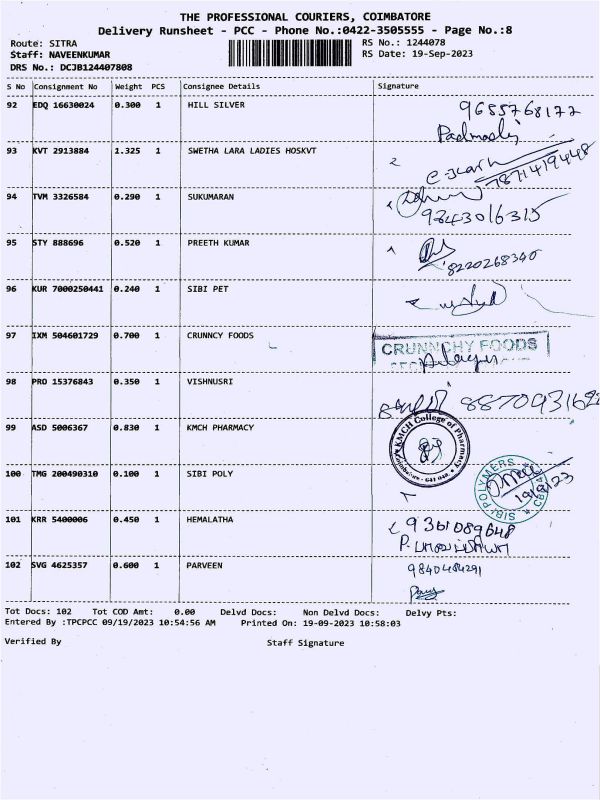 THE PROFESSIONAL COURIERS, COIMBATORE
Delivery Runsheet - PCC - Phone No.:0422-3505555 - Page No.:8
Route: SITRA RS No.: 1244078
Staff: NAVEENKUMAR RS Date: 19-Sep-2023
DRS No.: DCJB124407808
S No Consignment No Weight PCS Consignee Details Signature
92 EDQ 16630024 0.300 1 HILL SILVER 9655768177
93 KVT 2913884 1.325 1 SWETHA LARA LADIES HOSKVT
7871419448
94 TVM 3326584 0.290 1 SUKUMARAN
9843016315
95 STY 888696 0.520 1 PREETH KUMAR
8220268340
96 KUR 7000250441 0.240 1 SIBI PET
97 IXM 504601729 0.700 1 CRUNNCY FOODS CRUNNCHY FOODS
98 PRO 15376843 0.350 1 VISHNUSRI
99 ASD 5006367 0.830 1 KMCH PHARMACY KMCH College of Pharmacy
100 TMG 200490310 0.100 1 SIBI POLY SIBI POLYMERS
19/9/23
101 KRR 5400006 0.450 1 HEMALATHA 9361089648
102 SVG 4625357 0.600 1 PARVEEN 9840484291
Tot Docs: 102 Tot COD Amt: 0.00 Delvd Docs: Non Delvd Docs: Delvy Pts:
Entered By :TPCPCC 09/19/2023 10:54:56 AM Printed On: 19-09-2023 10:58:03
Verified By Staff Signature